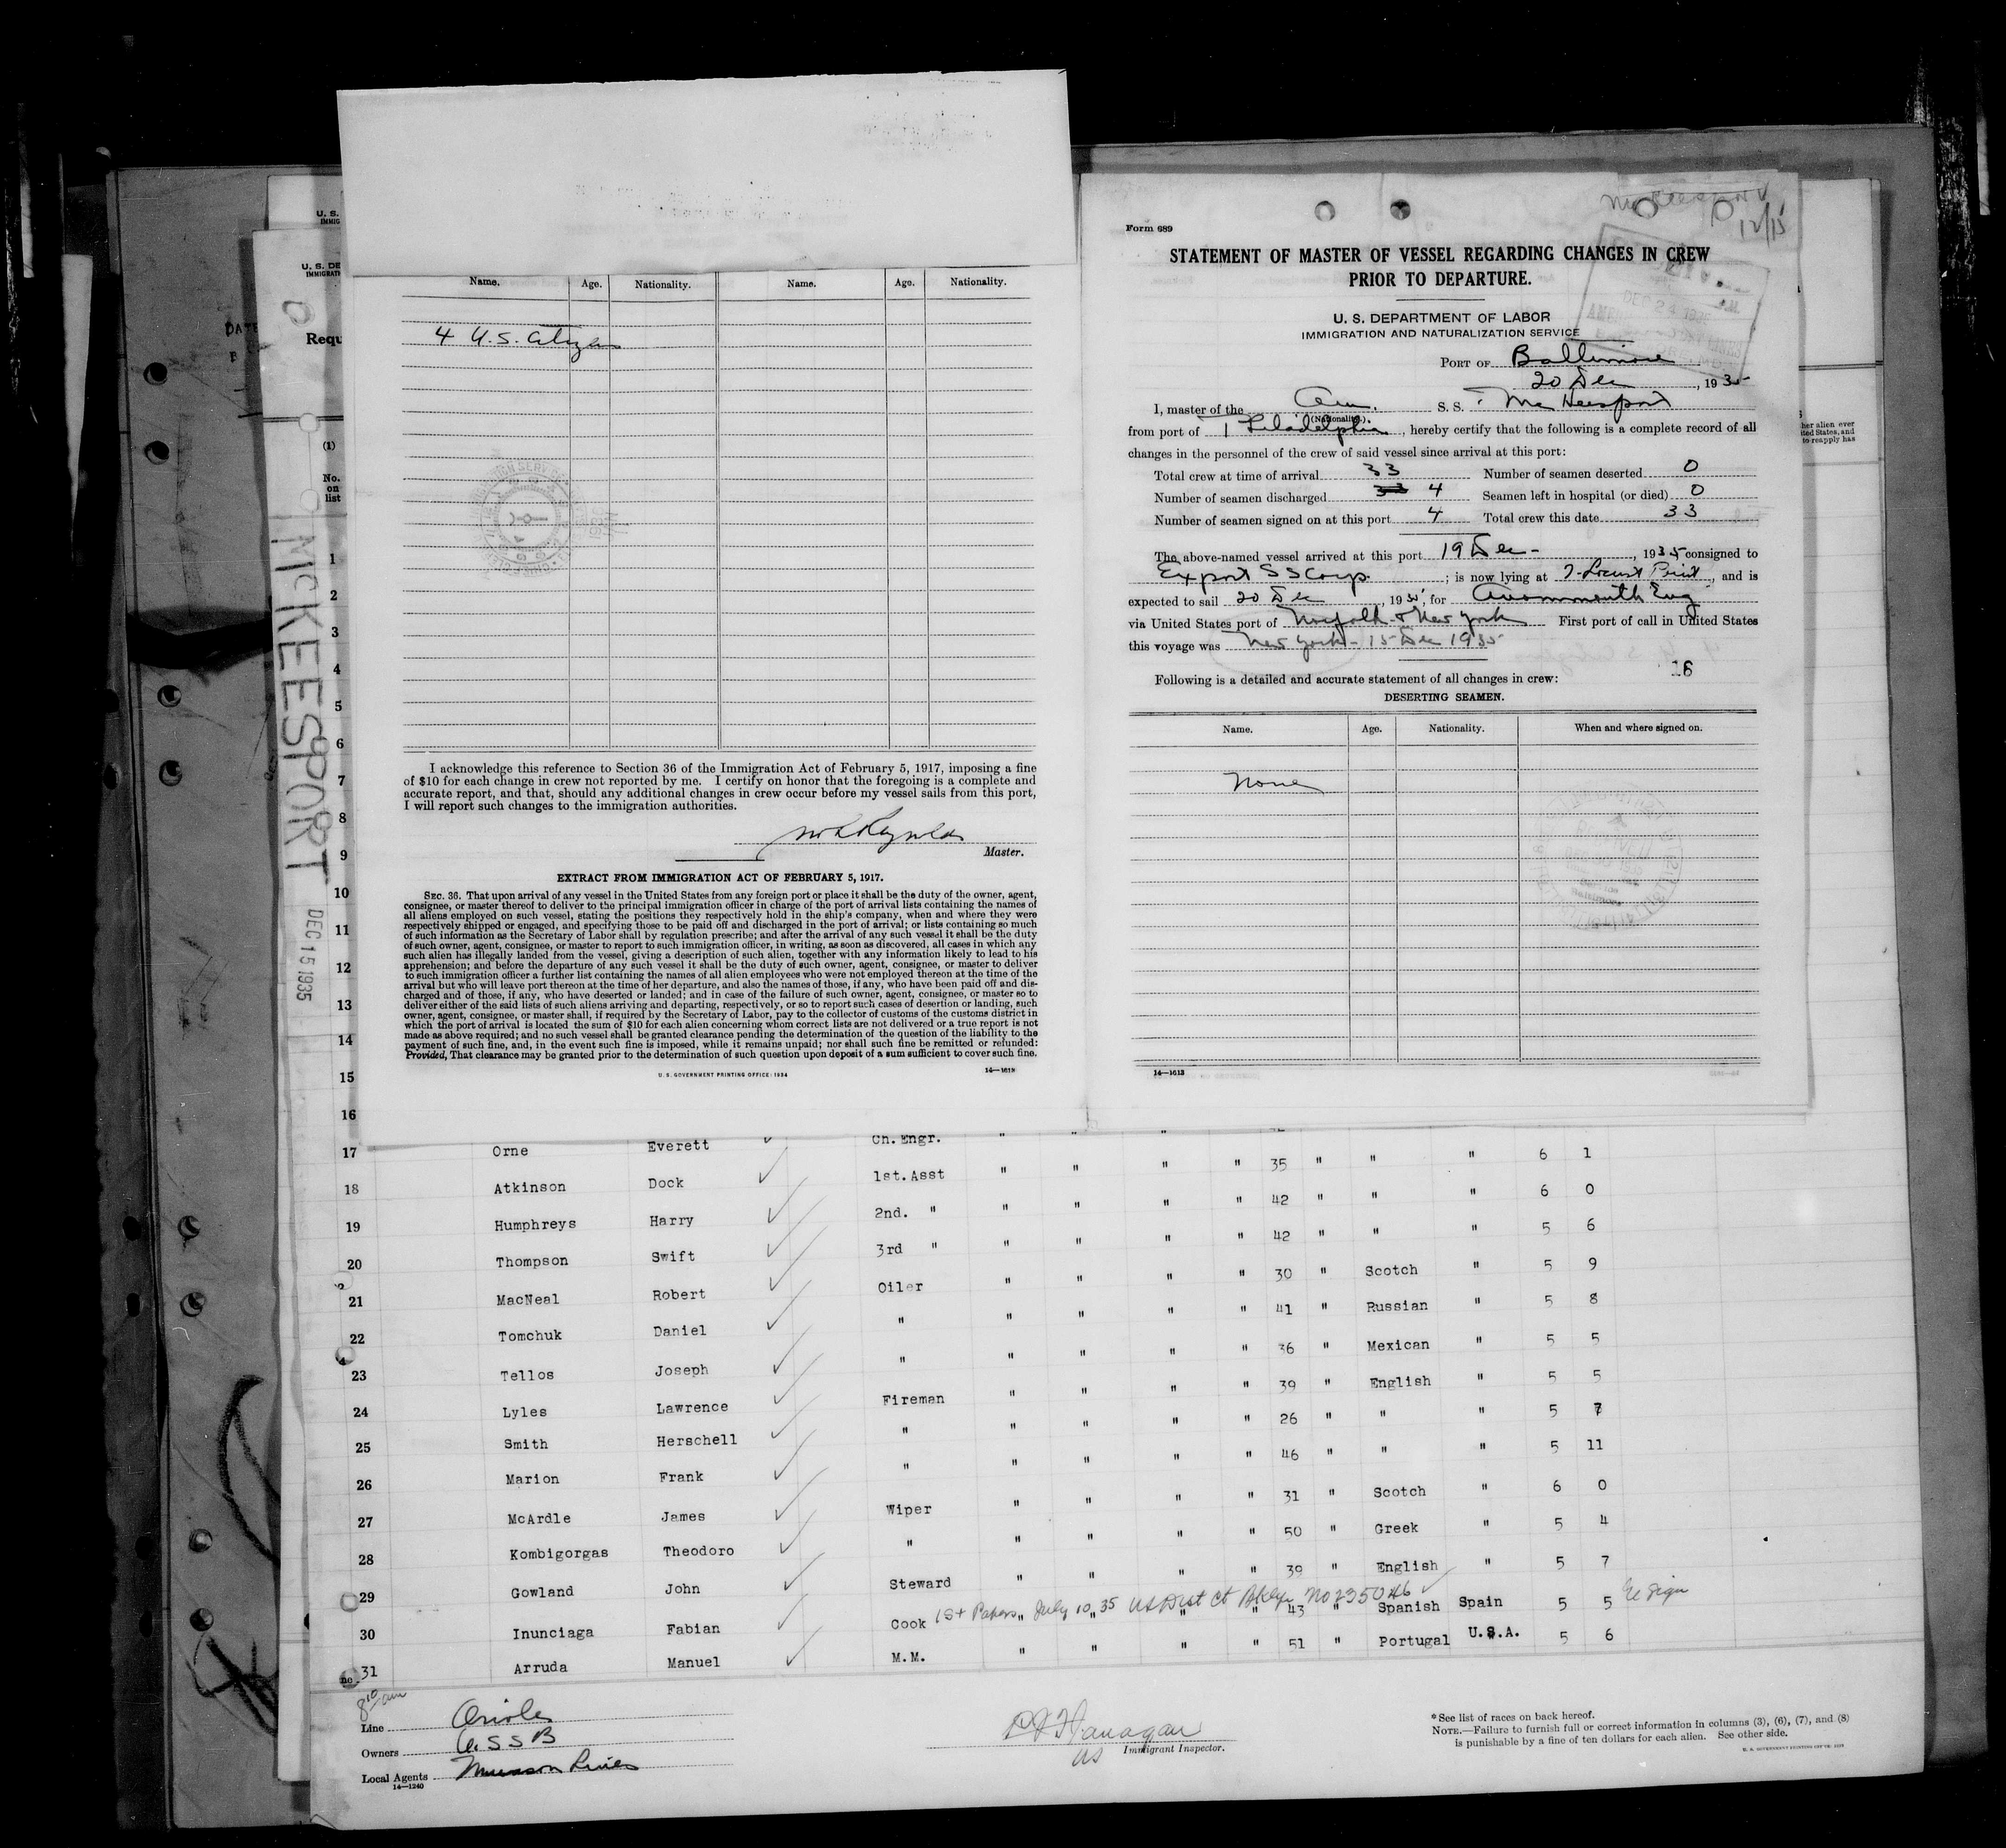 U. S.
IMMIG
U. S. DE
IMMIGRATI
Requ
(1)
No.
on
list
MCKEESPORT
DEC 15 1935
Name. Age. Nationality. Name. Age. Nationality.
4 U.S. Citizen
I acknowledge this reference to Section 36 of the Immigration Act of February 5, 1917, imposing a fine
of $10 for each change in crew not reported by me. I certify on honor that the foregoing is a complete and
accurate report, and that, should any additional changes in crew occur before my vessel sails from this port,
I will report such changes to the immigration authorities.
Reynolds
Master.
EXTRACT FROM IMMIGRATION ACT OF FEBRUARY 5, 1917.
SEC. 36. That upon arrival of any vessel in the United States from any foreign port or place it shall be the duty of the owner, agent,
consignee, or master thereof to deliver to the principal immigration officer in charge of the port of arrival lists containing the names of
all aliens employed on such vessel, stating the positions they respectively hold in the ship's company, when and where they were
respectively shipped or engaged, and specifying those to be paid off and discharged in the port of arrival; or lists containing so much
of such information as the Secretary of Labor shall by regulation prescribe; and after the arrival of any such vessel it shall be the duty
of such owner, agent, consignee, or master to report to such immigration officer, in writing, as soon as discovered, all cases in which any
such alien has illegally landed from the vessel, giving a description of such alien, together with any information likely to lead to his
apprehension; and before the departure of any such vessel it shall be the duty of such owner, agent, consignee, or master to deliver
to such immigration officer a further list containing the names of all alien employees who were not employed thereon at the time of the
arrival but who will leave port thereon at the time of her departure, and also the names of those, if any, who have been paid off and dis-
charged and of those, if any, who have deserted or landed; and in case of the failure of such owner, agent, consignee, or master so to
deliver either of the said lists of such aliens arriving and departing, respectively, or so to report such cases of desertion or landing, such
owner, agent, consignee, or master shall, if required by the Secretary of Labor, pay to the collector of customs of the customs district in
which the port of arrival is located the sum of $10 for each alien concerning whom correct lists are not delivered or a true report is not
made as above required; and no such vessel shall be granted clearance pending the determination of the question of the liability to the
payment of such fine, and, in the event such fine is imposed, while it remains unpaid; nor shall such fine be remitted or refunded:
Provided, That clearance may be granted prior to the determination of such question upon deposit of a sum sufficient to cover such fine.
U. S. GOVERNMENT PRINTING OFFICE: 1934 14—1613
McKeesport
12/15
Form 689
STATEMENT OF MASTER OF VESSEL REGARDING CHANGES IN CREW
PRIOR TO DEPARTURE.
DEC 24 1935
U. S. DEPARTMENT OF LABOR
IMMIGRATION AND NATURALIZATION SERVICE
PORT OF Baltimore
20 Dec, 1935
I, master of the Am. S. S. McKeesport
(Nationality)
from port of Philadelphia, hereby certify that the following is a complete record of all
changes in the personnel of the crew of said vessel since arrival at this port:
Total crew at time of arrival 33 Number of seamen deserted 0
Number of seamen discharged 33 4 Seamen left in hospital (or died) 0
Number of seamen signed on at this port 4 Total crew this date 33
The above-named vessel arrived at this port 19 Dec -, 1935 consigned to
Export SS Corp.; is now lying at Locust Point, and is
expected to sail 20 Dec, 1935, for Avonmouth Eng
via United States port of Norfolk & New York First port of call in United States
this voyage was New York - 15 Dec 1935
16
Following is a detailed and accurate statement of all changes in crew:
DESERTING SEAMEN.
Name. Age. Nationality. When and where signed on.
None
14—1613
her alien ever
ited States, and
to reapply has
1
2
3
4
5
6
7
8
9
10
11
12
13
14
15
16
17 Orne Everett Ch. Engr. " " "
18 Atkinson Dock 1st. Asst " " " " 35 " " " 6 1
19 Humphreys Harry 2nd. " " " " " 42 " " " 6 0
20 Thompson Swift 3rd " " " " " 42 " " " 5 6
21 MacNeal Robert Oiler " " " " 30 " Scotch " 5 9
22 Tomchuk Daniel " " " " " 41 " Russian " 5 8
23 Tellos Joseph " " " " " 36 " Mexican " 5 5
24 Lyles Lawrence Fireman " " " " 39 " English " 5 5
25 Smith Herschell " " " " " 26 " " " 5 7
26 Marion Frank " " " " " 46 " " " 5 11
27 McArdle James Wiper " " " " 31 " Scotch " 6 0
28 Kombigorgas Theodoro " " " " " 50 " Greek " 5 4
29 Gowland John Steward " " " " 39 " English " 5 7
1st Papers July 10, 35 US Dist Ct Bklyn No 235046
30 Inunciaga Fabian Cook " " " " 43 " Spanish Spain 5 5
31 Arruda Manuel M.M. " " " " 51 " Portugal U.S.A. 5 6
Line Oriole
Owners U.S S B
Local Agents Munson Line
14—1240
Flanagan
US Immigrant Inspector.
*See list of races on back hereof.
NOTE.—Failure to furnish full or correct information in columns (3), (6), (7), and (8)
is punishable by a fine of ten dollars for each alien. See other side.